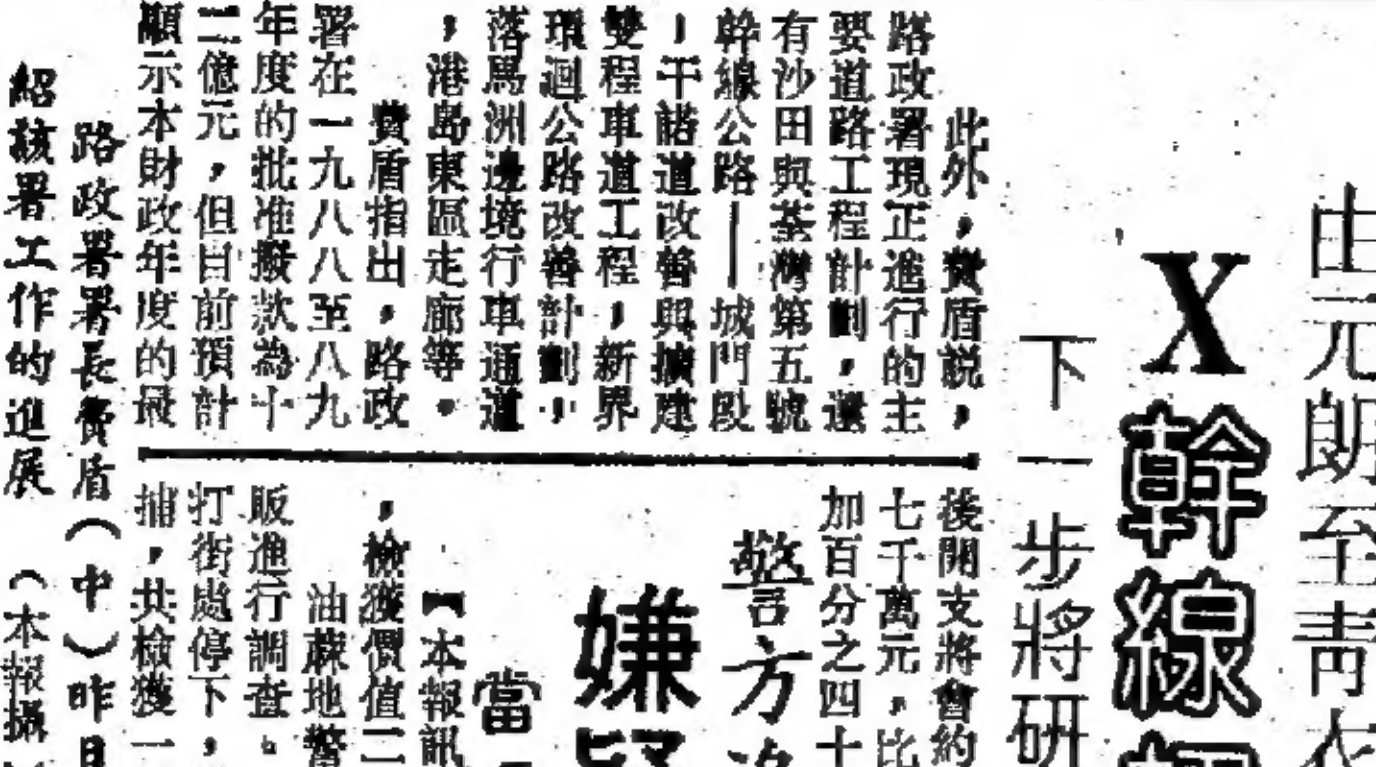 由元朗至青衣
X幹線
下一步將研
此外，費盾說，
路政署現正進行的主
要道路工程計劃，還
有沙田與荃灣第五號
幹線公路——城門段
，干諾道改善與擴建
雙程車道工程，新界
環迴公路改善計劃，
落馬洲邊境行車通道
，港島東區走廊等。
費盾指出，路政
署在一九八八至八九
年度的批准撥款為十
二億元，但目前預計
顯示本財政年度的最
後開支將會約
七千萬元，比
加百分之四十
警方
嫌疑
當
【本報訊
，檢獲價值二
油蔴地警
販進行調查。
打街處停下，
捕，共檢獲一
路政署署長費盾（中）昨日
紹該署工作的進展　（本報攝